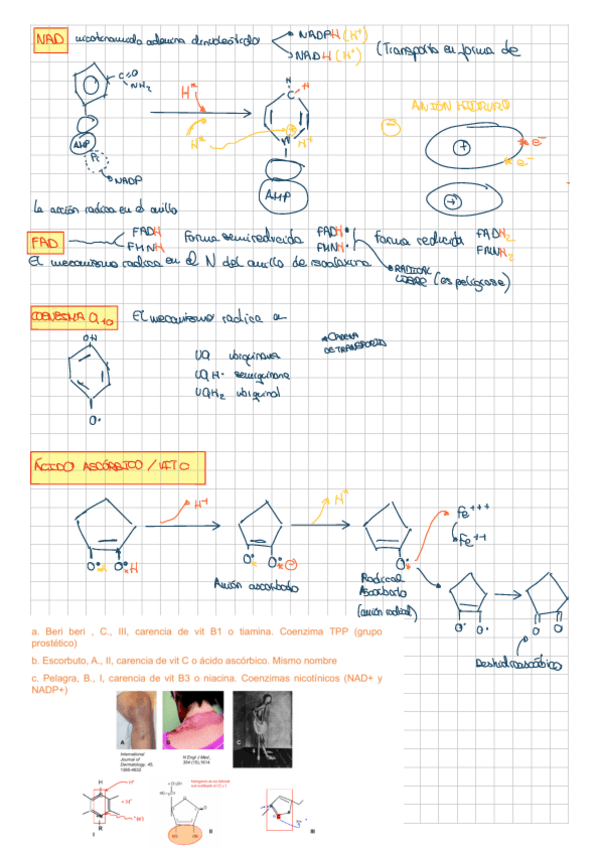 NAD nicotinamida adenina dinucleótido NADPH (H⁺)
NADH (H⁺) (Transporta en forma de
C=O
NH₂
H
C H
H⁺
ANIÓN HIDRURO
N
H⁺
AMP
Pi
NADP
AMP
+
e⁻
e⁻
+
La acción radica en el anillo
FAD FADH Forma semireducida FADH• Forma reducida FADH₂
FMNH FMNH• FMNH₂
El mecanismo radica en el N del anillo de isoalaxina RADICAL
LIBRE (es peligroso)
COENZIMA Q₁₀ El mecanismo radica a
OH
CADENA
DE TRANSPORTE
UQ ubiquinona
UQH• semiquinona
UQH₂ ubiquinol
O•
ÁCIDO ASCÓRBICO / VIT C
H⁺
Fe⁺⁺⁺
Fe⁺⁺
O O H
O O
O O
Anión ascorbato
Radical
Ascorbato
(anión radical)
O O
O O
Deshidroascórbico
a. Beri beri , C., III, carencia de vit B1 o tiamina. Coenzima TPP (grupo
prostético)
b. Escorbuto, A., II, carencia de vit C o ácido ascórbico. Mismo nombre
c. Pelagra, B., I, carencia de vit B3 o niacina. Coenzimas nicotínicos (NAD+ y
NADP+)
A B C
International
Journal of
Dermatology, 45,
N Engl J Med,
H
R
I
II
III